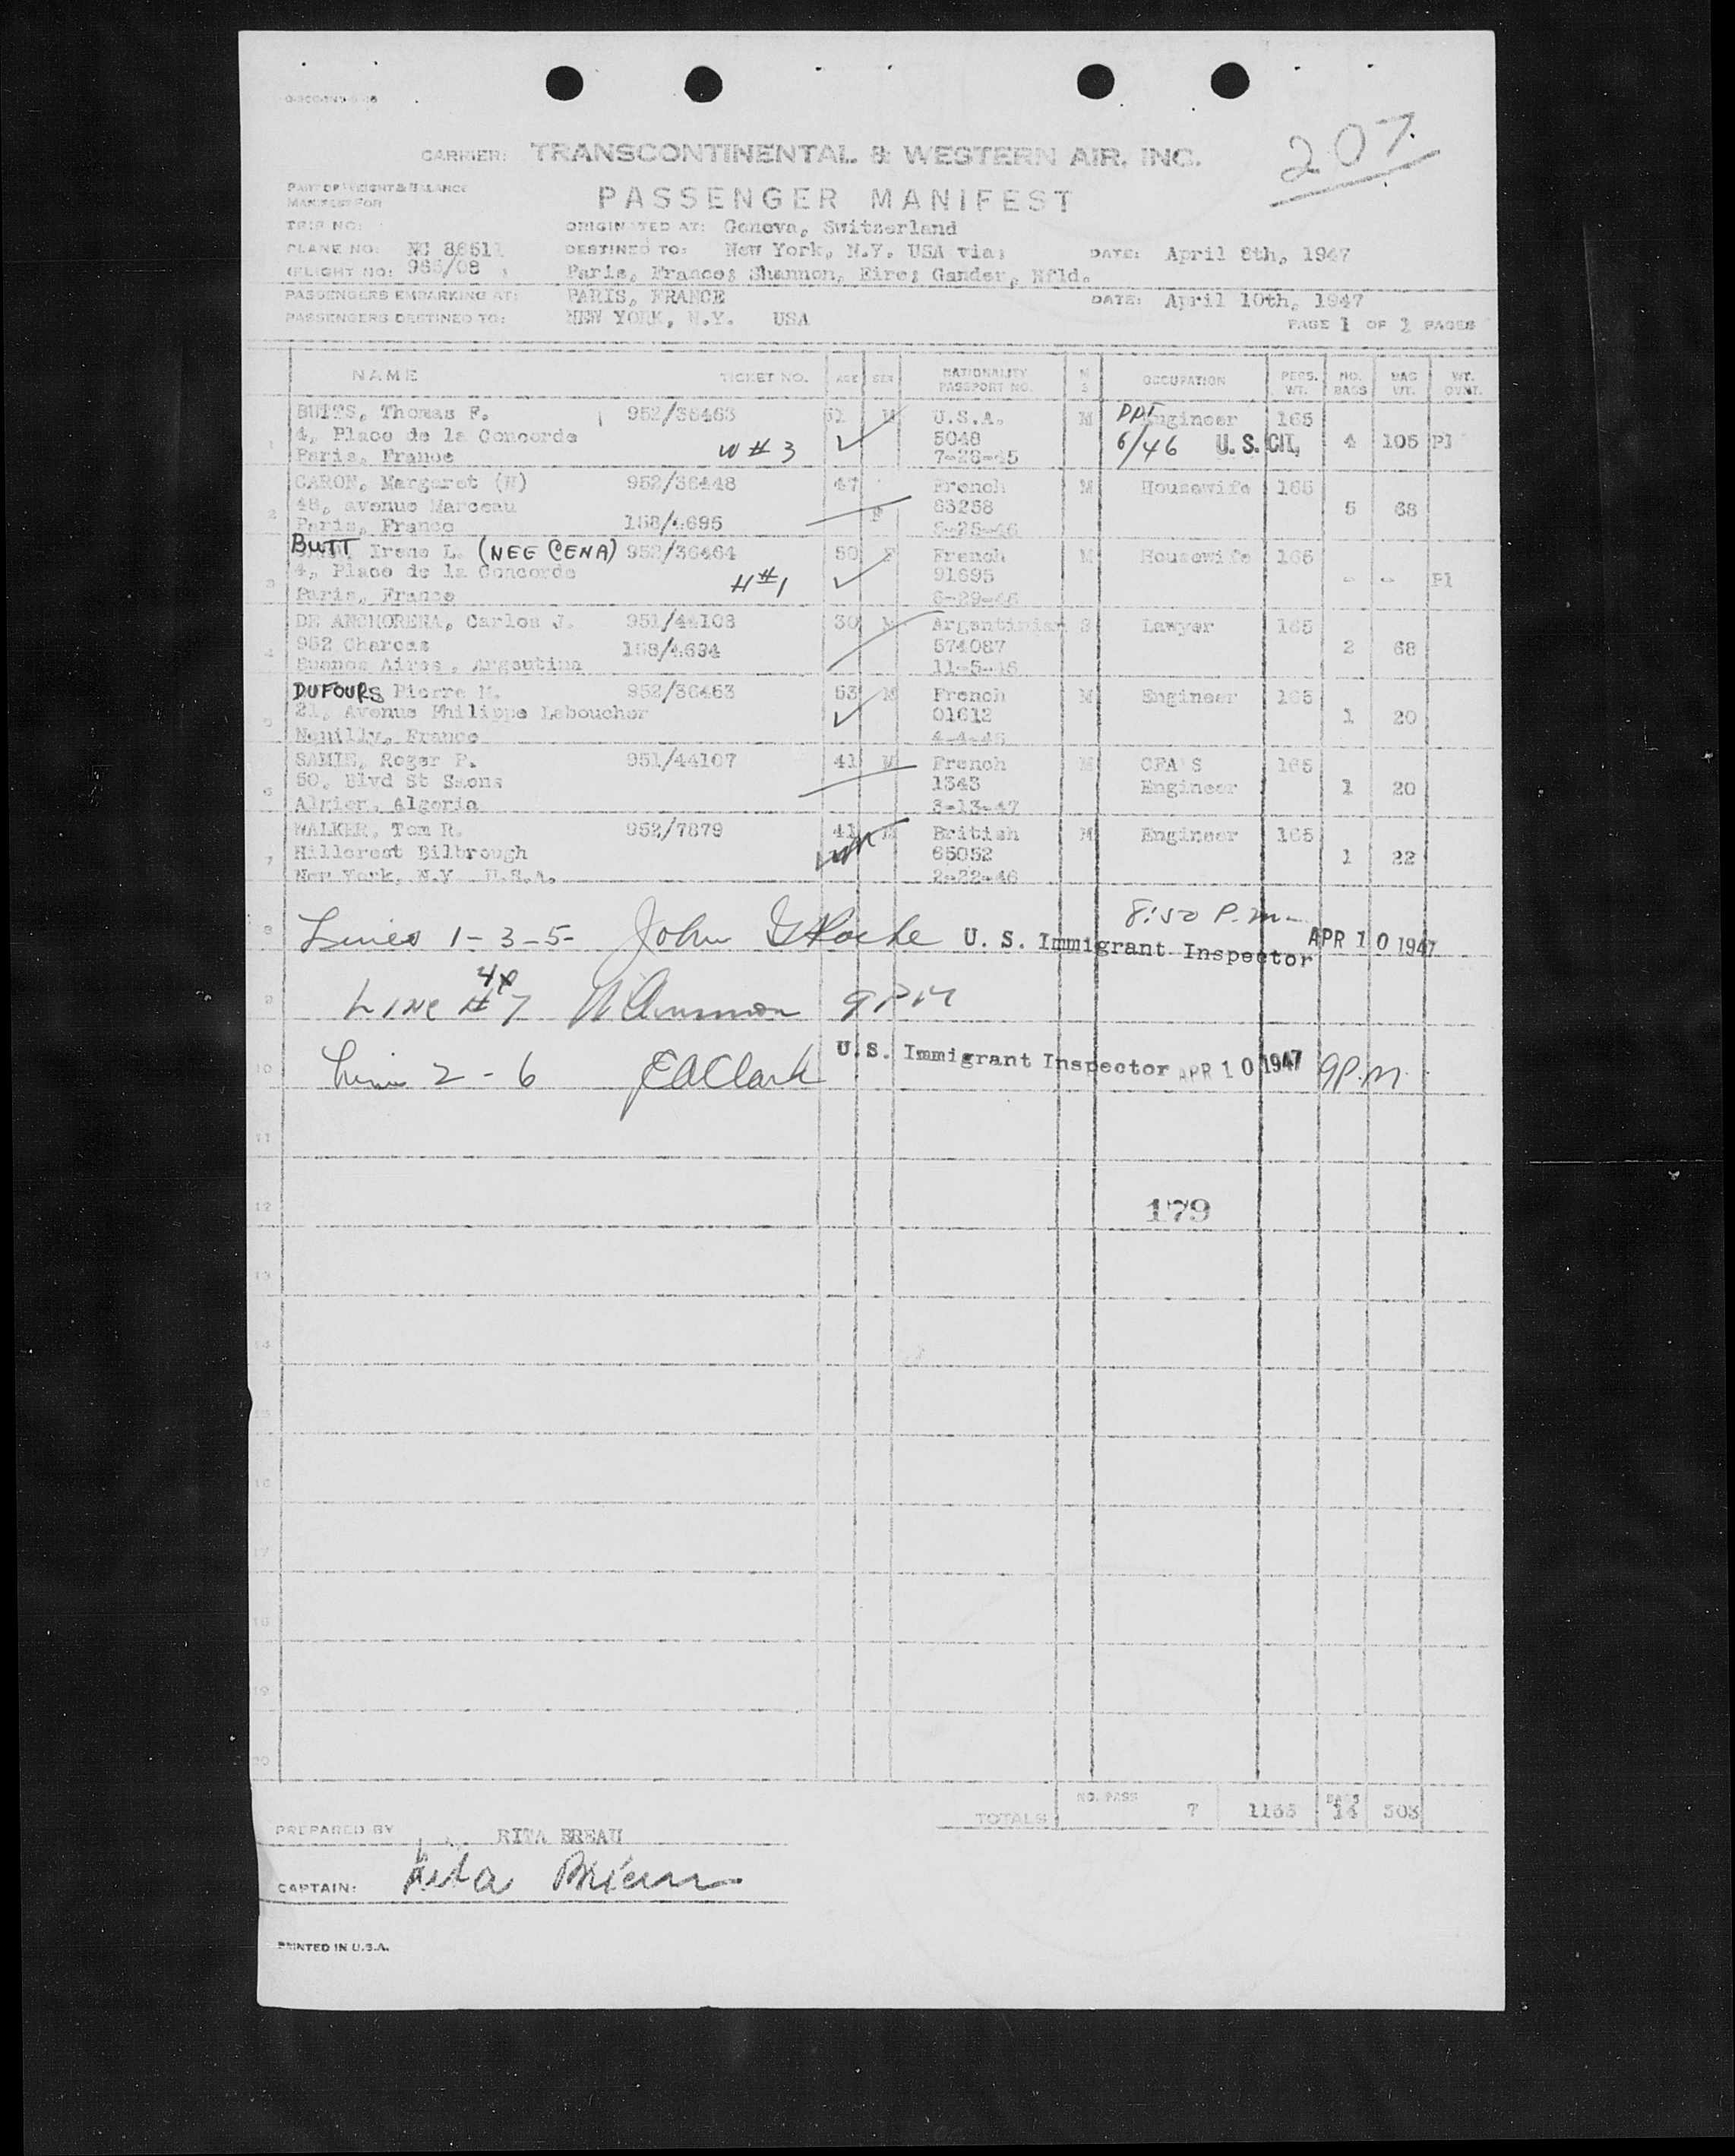 207
CARRIER: TRANSCONTINENTAL & WESTERN AIR, INC.
PART OF WEIGHT & BALANCE
MANIFEST FOR
PASSENGER MANIFEST
TRIP NO:
ORIGINATED AT: Geneva, Switzerland
PLANE NO: NC 86511 DESTINED TO: New York, N.Y. USA via; DATE: April 8th, 1947
FLIGHT NO: 985/08 Paris, France; Shannon, Eire; Gander, Nfld.
PASSENGERS EMBARKING AT: PARIS, FRANCE DATE: April 10th, 1947
PASSENGERS DESTINED TO: NEW YORK, N.Y. USA
PAGE 1 OF 1 PAGES
NAME TICKET NO. AGE SEX NATIONALITY PASSPORT NO. M S OCCUPATION PERS. WT. NO. BAGS BAG WT. WT. OVNT.
BUTTS, Thomas F. 952/36463 51 M U.S.A. M PPT Engineer 165
1 4, Place de la Concorde W#3 5048 6/46 U.S. CIT. 4 105 Pl
Paris, France 7-26-45
CARON, Margaret (W) 952/36448 47 French M Housewife 165
2 48, avenue Marceau F 63258 5 68
Paris, France 158/4695 6-25-46
BUTT Irene L. (NEE CENA) 952/36464 50 F French M Housewife 165
3 4, Place de la Concorde H#1 91695 - - Pl
Paris, France 6-29-46
DE ANCHORENA, Carlos J. 951/44108 30 M Argentinian S Lawyer 165
4 952 Charcas 158/4694 574087 2 68
Buenos Aires, Argentina 11-5-45
DUFOURS Pierre M. 952/36453 53 M French M Engineer 165
5 21, Avenue Philippe Leboucher 01612 1 20
Neuilly, France 4-4-46
SAMIE, Roger P. 951/44107 41 M French M CFA'S 165
6 50, Blvd St Saens 1343 Engineer 1 20
Algier, Algeria 3-13-47
WALKER, Tom R. 952/7879 41 M British M Engineer 165
7 Hillcrest Bilbrough 65052 1 22
New York, N.Y U.S.A. 2-22-46
8:50 P.m.
8 Lines 1-3-5- John G Roche U. S. Immigrant Inspector APR 10 1947
4+
9 LINE #7 9PM
10 Line 2-6 E A Clark U.S. Immigrant Inspector APR 10 1947 9P.M
11
12 179
13
14
15
16
17
18
19
20
TOTALS NO. PASS 7 1155 BAGS 14 303
PREPARED BY RITA BREAU
CAPTAIN: Rita
PRINTED IN U.S.A.